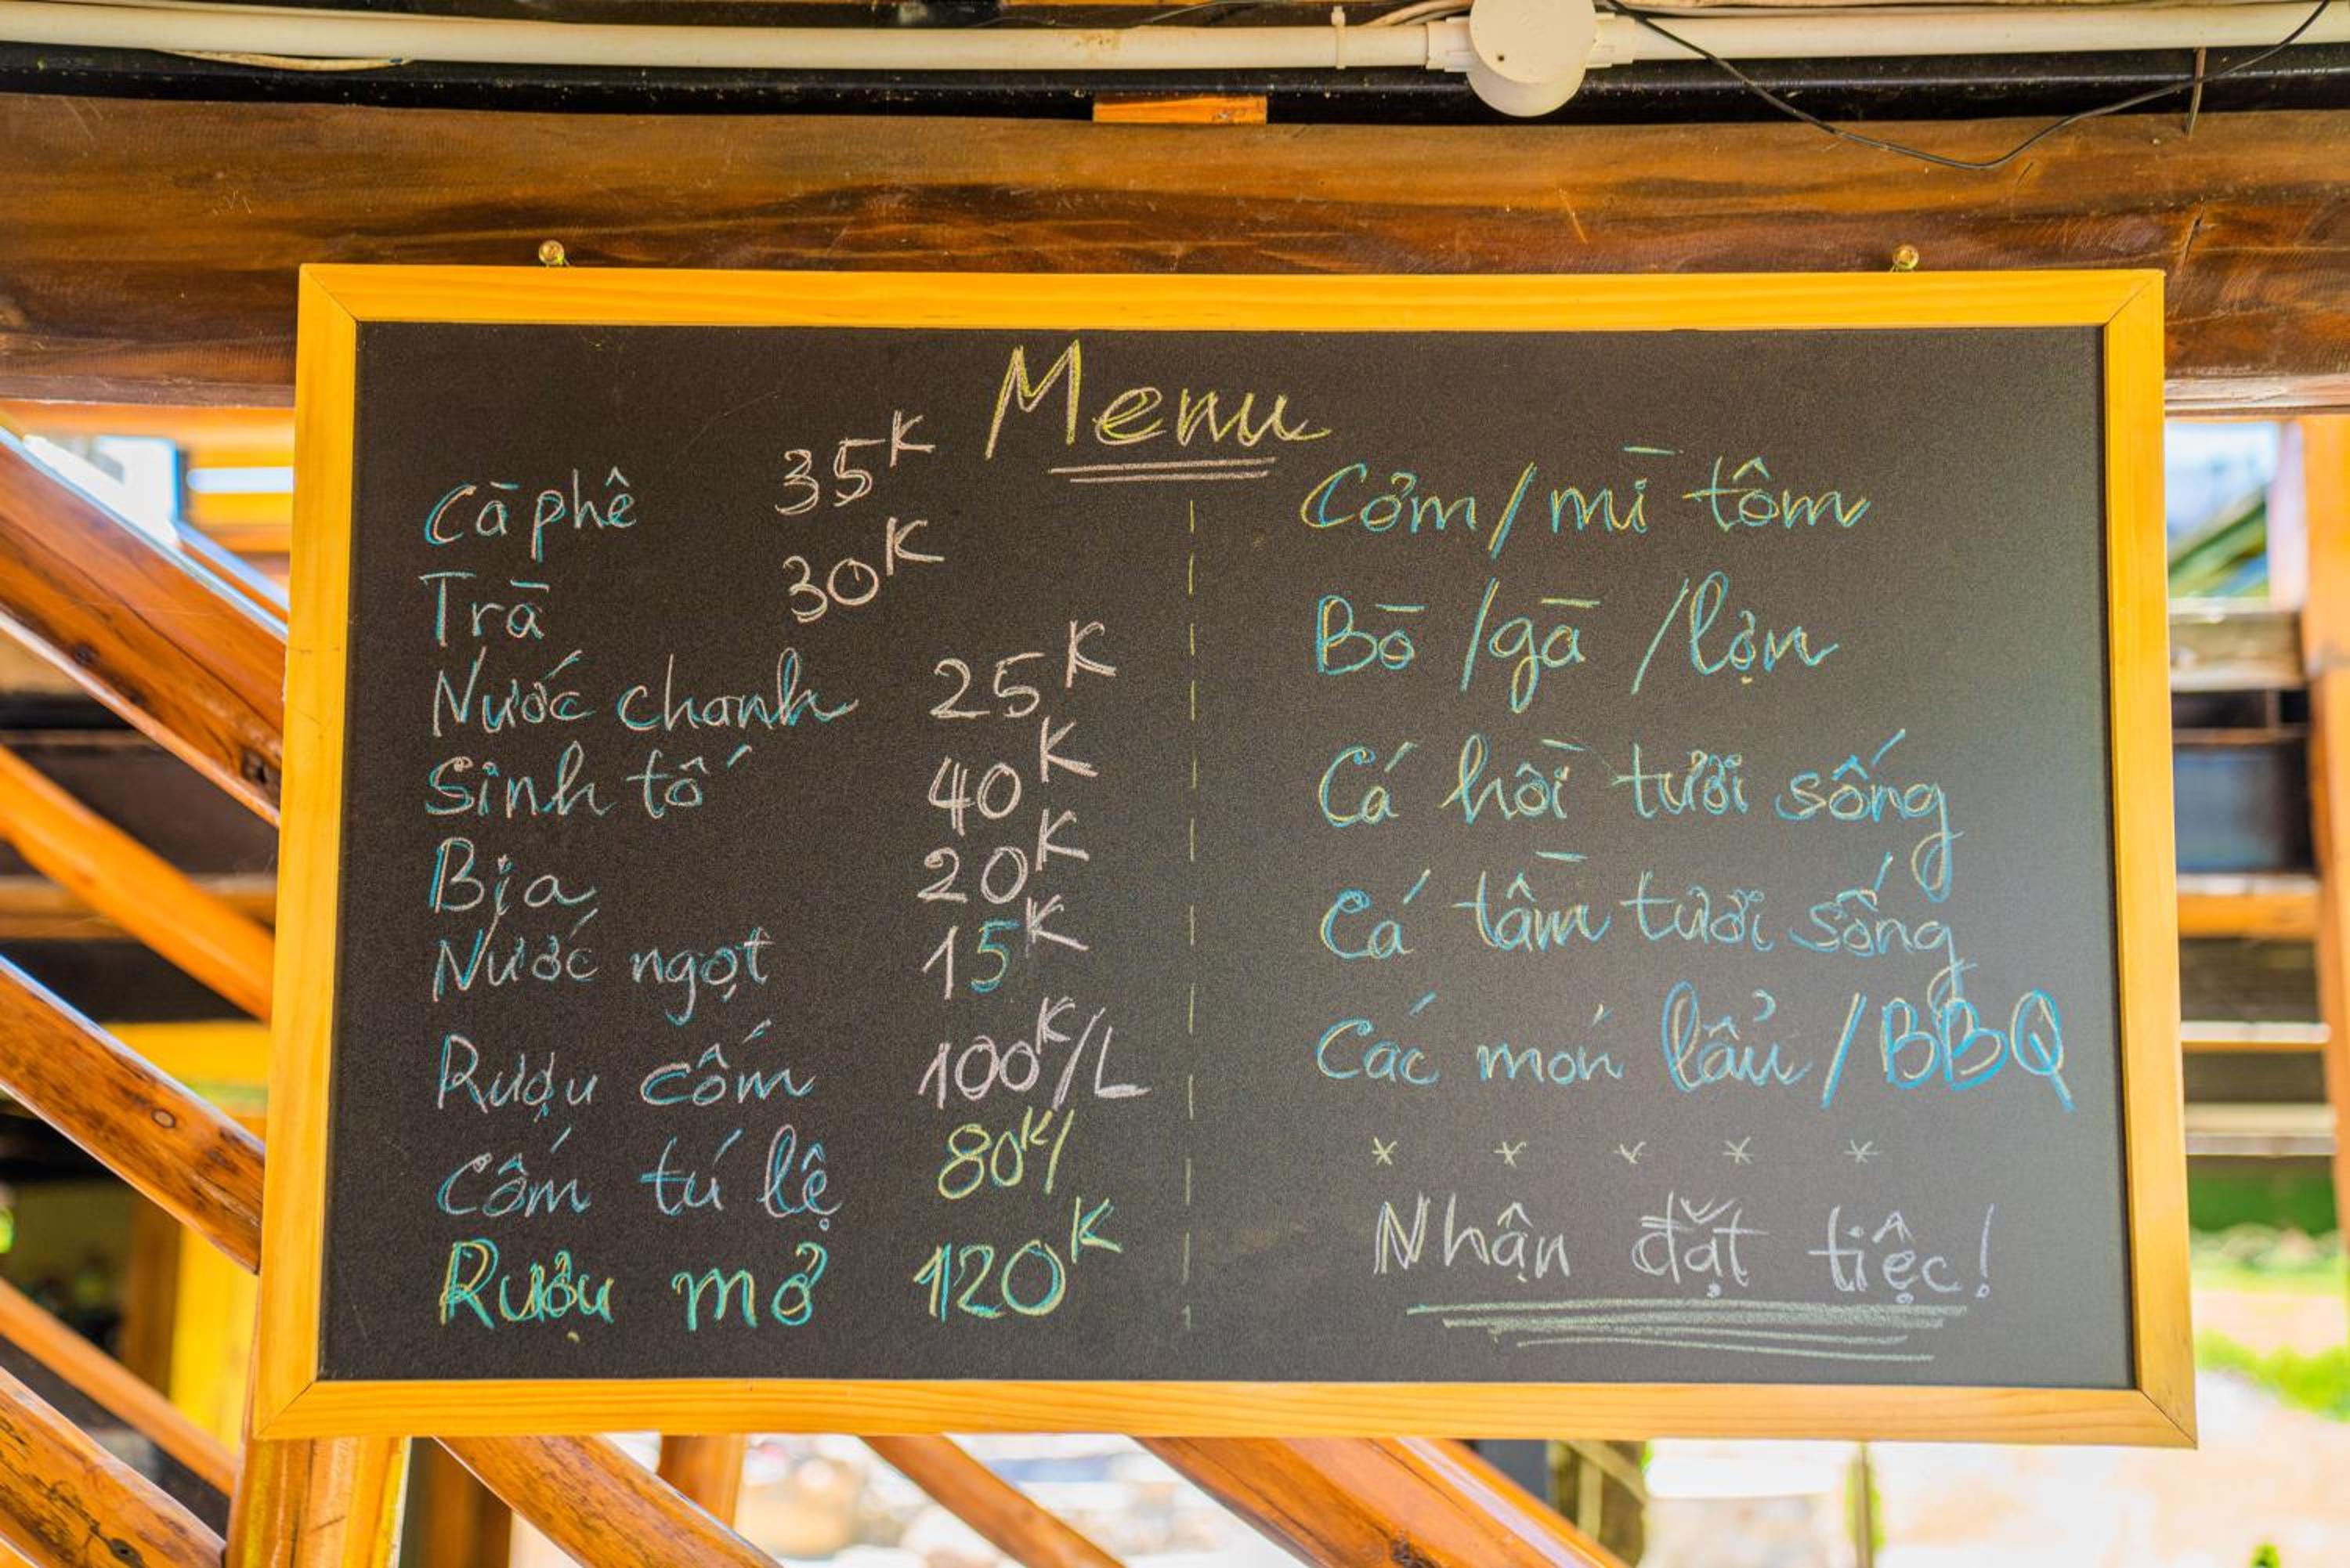 Menu
Cà phê 35K
Trà 30K
Nước chanh 25K
Sinh tố 40K
Bia 20K
Nước ngọt 15K
Rượu cốm 100K/L
Cốm tú lệ 80K/
Rượu mơ 120K
Cơm/mì tôm
Bò/gà/lợn
Cá hồi tươi sống
Cá tầm tươi sống
Các món lẩu/BBQ
* * * * *
Nhận đặt tiệc!